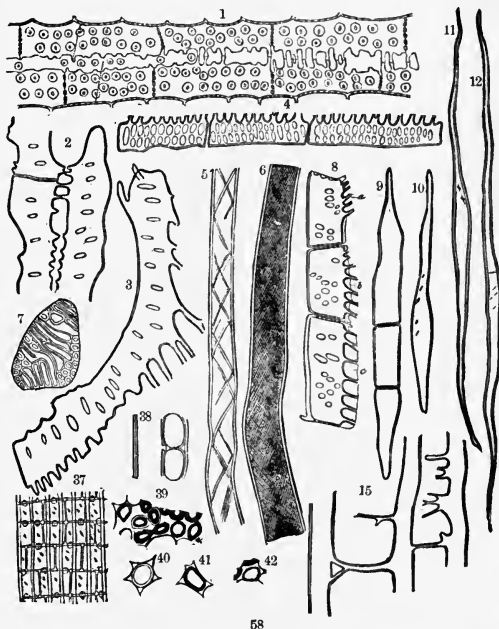 1
11
12
4
2
5
6
8
9
10
3
7
38
37
39
15
40
41
42
58